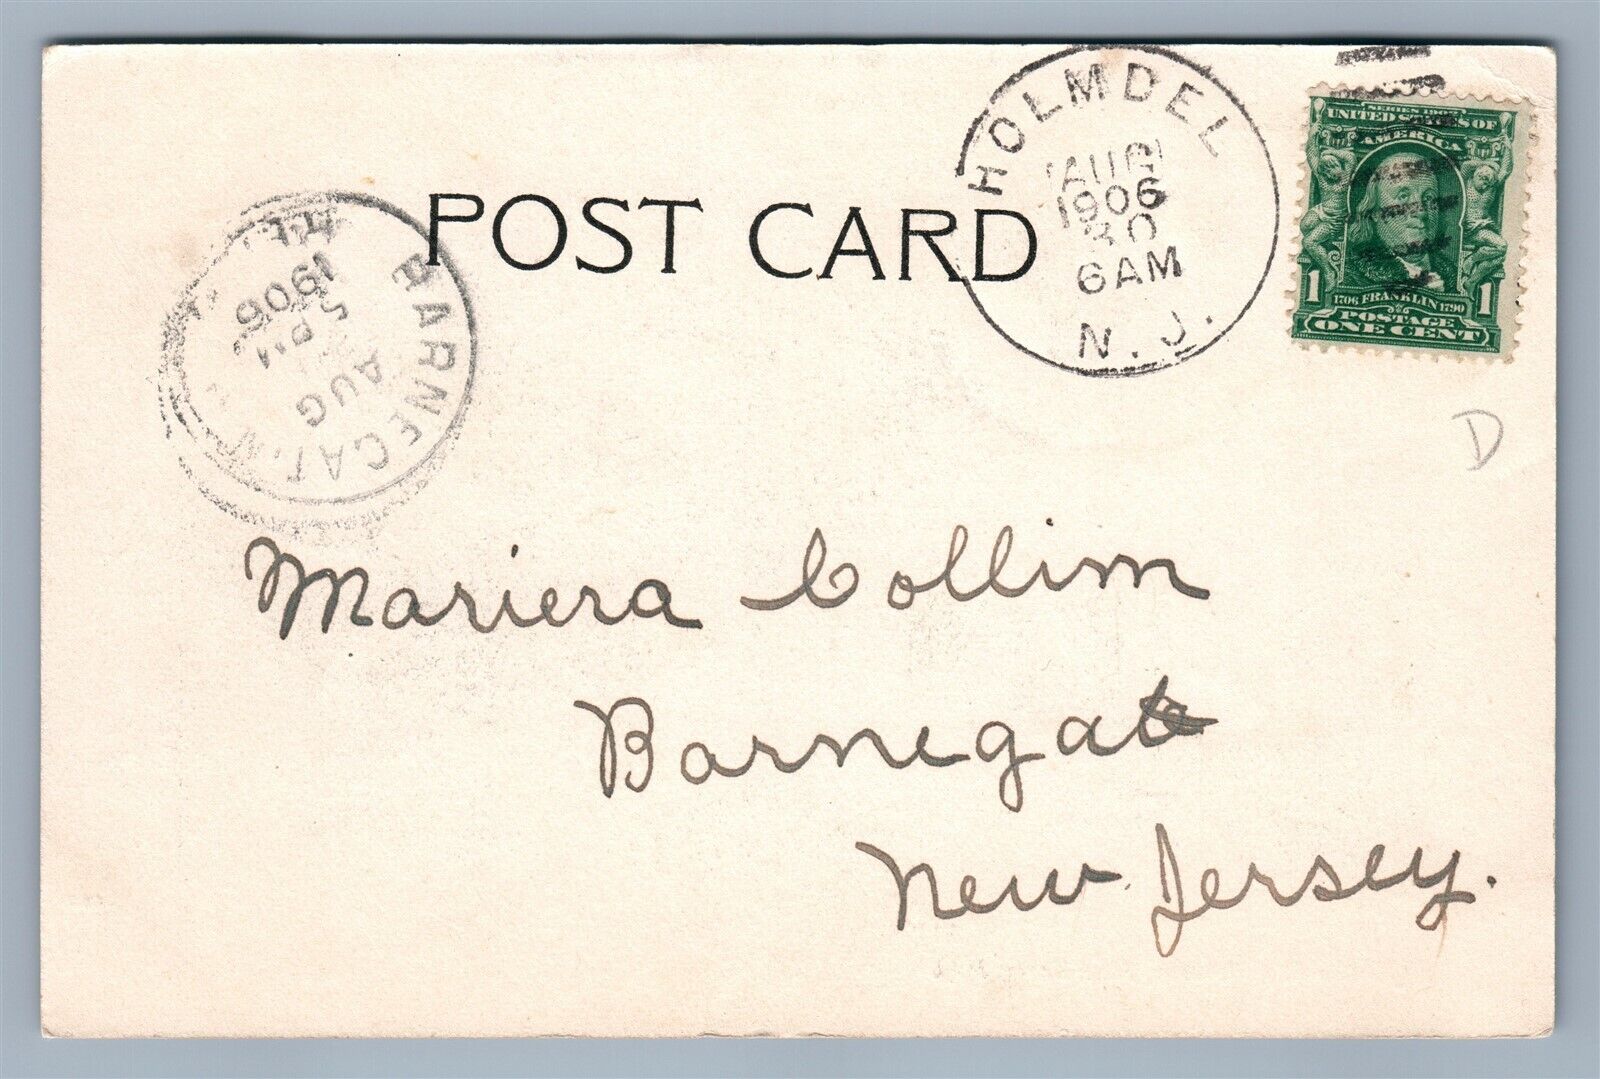 POST CARD
HOLMDEL
AUG
1906
30
6AM
N.J.
SERIES 1902
UNITED STATES OF
AMERICA
1706 FRANKLIN 1790
1 POSTAGE 1
ONE CENT
BARNEGAT, N.
AUG
5 PM
1906
D
Mariera Collim
Barnegat
New Jersey.